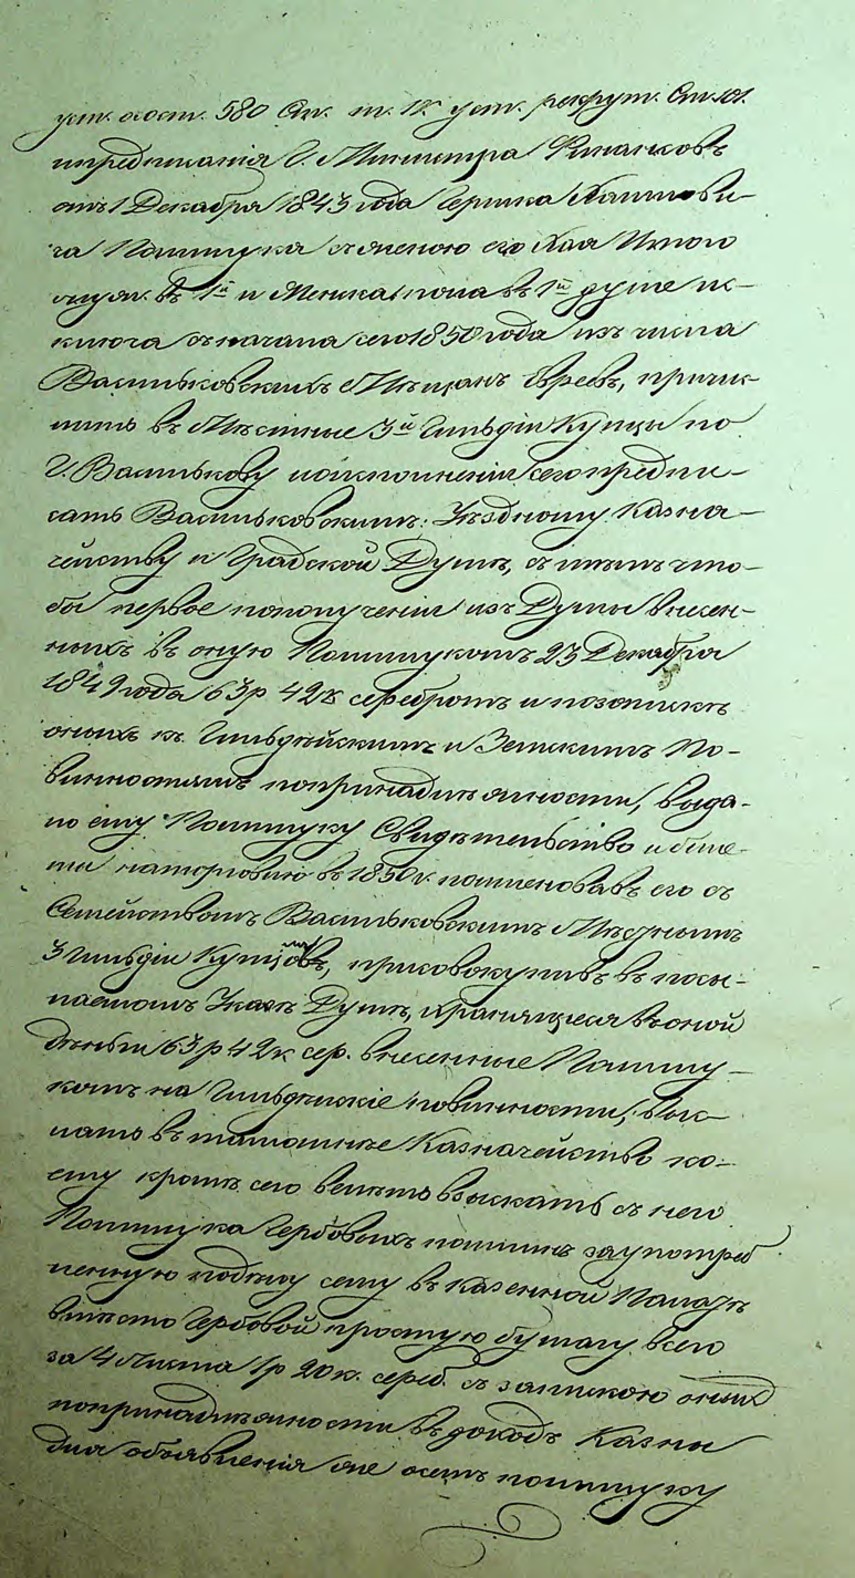 уст. о сост. 580 Ст. т. IV. уст. рекрут. Ст. 101.
предписанія Г. Министра Финансовъ
отъ 1 Декабря 1843 года Гершка
ча Полищука съ женою его Хая
въ 1й и Мужеска пола въ 1й душе ис-
ключа съ начала сего 1850 года изъ числа
Васильковскихъ Мѣщанъ Евреевъ, причис-
лить въ Мѣстные 3й Гильдіи Купцы по
Г. Василькову и о исполненіи сего предпи-
сать Васильковскимъ: Уѣздному Казна-
чейству и Градской Думѣ, съ тѣмъ что-
бы первое по полученіи изъ Думы внесен-
ныхъ въ оную Полищукомъ 23 Декабря
1849 года 63р 42к серебромъ и по запискѣ
оныхъ къ Гильдѣйскимъ и Земскимъ По-
винностямъ по принадлежности, выда-
ло ему Полищуку Свидѣтельство и биле-
ты на торговлю въ 1850 г. поименовавъ его съ
Семействомъ Васильковскимъ Мѣстнымъ
3 Гильдіи Купцомъ, присовокупивъ въ посы-
лаемомъ Указѣ Думѣ, хранящіеся въ оной
деньги 63р 42к сер. внесенные Полищу-
комъ на Гильдѣйскіе повинности, выс-
лать въ тамошнее Казначейство ко-
ему кромѣ сего велѣть взыскать съ него
Полищука Гербовыхъ пошлинъ за употреб
ленную по дѣлу сему въ Казенной Палатѣ
вмѣсто Гербовой простую бумагу всего
за 4 Листа 1р 20к. сереб. съ запискою оныхъ
по принадлежности въ доходъ Казны
для объявленія же о семъ полищуку